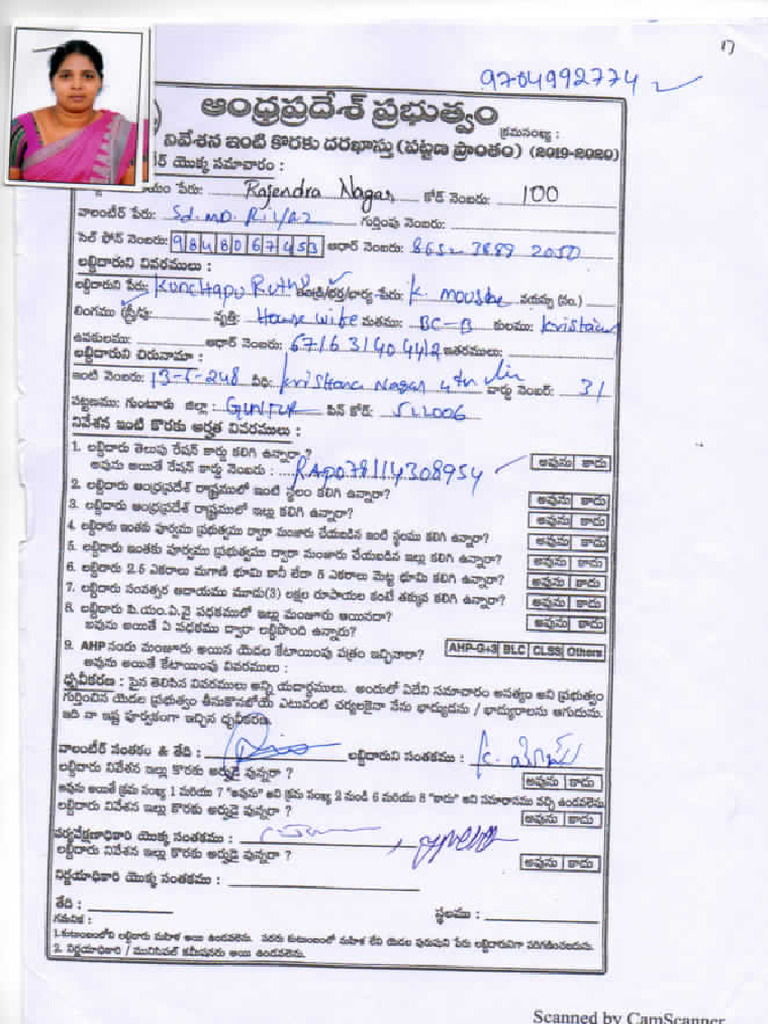 17
9704992774
ఆంధ్రప్రదేశ్ ప్రభుత్వం
క్రమసంఖ్య :
నివేశన ఇంటి కొరకు దరఖాస్తు (పట్టణ ప్రాంతం) (2019-2020)
యొక్క సమాచారం :
పేరు: Rajendra Nagar కోడ్ నెంబరు: 100
వాలంటీర్ పేరు: Sd.MD. Riyaz గుర్తింపు నెంబరు:
సెల్ ఫోన్ నెంబరు: 9848067453 ఆధార్ నెంబరు: 8652 3889 2050
లబ్ధిదారుని వివరములు :
లబ్ధిదారుని పేరు: Kunchapu Ruth తండ్రి/భర్త/భార్య పేరు: K. moushe వయస్సు (సం.)
లింగము (స్త్రీ/పు: వృత్తి: House wife మతము: BC-B కులము:
ఉపకులము: ఆధార్ నెంబరు: 671631404412 ఇతరములు:
లబ్ధిదారుని చిరునామా :
ఇంటి నెంబరు: 13-6-248 వీధి: Krishana Nagar 4th lin వార్డు నెంబర్: 31
పట్టణము: గుంటూరు జిల్లా: GUNTUR పిన్ కోడ్: 522006
నివేశన ఇంటి కొరకు అర్హత వివరములు :
1. లబ్ధిదారు తెలుపు రేషన్ కార్డు కలిగి ఉన్నారా ?
అవును అయితే రేషన్ కార్డు నెంబరు : RAP078114308954 అవును కాదు
2. లబ్ధిదారు ఆంధ్రప్రదేశ్ రాష్ట్రములో ఇంటి స్థలం కలిగి ఉన్నారా? అవును కాదు
3. లబ్ధిదారు ఆంధ్రప్రదేశ్ రాష్ట్రములో ఇల్లు కలిగి ఉన్నారా? అవును కాదు
4. లబ్ధిదారు ఇంతకు పూర్వము ప్రభుత్వము ద్వారా మంజూరు చేయబడిన ఇంటి స్థలము కలిగి ఉన్నారా? అవును కాదు
5. లబ్ధిదారు ఇంతకు పూర్వము ప్రభుత్వము ద్వారా మంజూరు చేయబడిన ఇల్లు కలిగి ఉన్నారా? అవును కాదు
6. లబ్ధిదారు 2.5 ఎకరాలు మాగాణి భూమి కాని లేదా 5 ఎకరాలు మెట్ట భూమి కలిగి ఉన్నారా? అవును కాదు
7. లబ్ధిదారు సంవత్సర ఆదాయము మూడు(3) లక్షల రూపాయల కంటే తక్కువ కలిగి ఉన్నారా? అవును కాదు
8. లబ్ధిదారు పి.యం.ఏ.వై పథకములో ఇల్లు మంజూరు అయినదా?
అవును అయితే ఏ పథకము ద్వారా లబ్ధిపొంది ఉన్నారు? అవును కాదు
9. AHP నందు మంజూరు అయిన యెడల కేటాయింపు పత్రం ఇచ్చినారా? AHP-G+3 BLC CLSS Others
అవును అయితే కేటాయింపు వివరములు :
ధృవీకరణ : పైన తెలిపిన వివరములు అన్ని యదార్థములు. అందులో ఏదేని సమాచారం అసత్యం అని ప్రభుత్వం
గుర్తించిన యెడల ప్రభుత్వం తీసుకొనబోయే ఎటువంటి చర్యలకైనా నేను భాద్యుడను / భాద్యురాలను ఆగుదును.
ఇది నా ఇష్ట పూర్వకంగా ఇచ్చిన ధృవీకరణ.
వాలంటీర్ సంతకం & తేది : లబ్ధిదారుని సంతకము :
లబ్ధిదారు నివేశన ఇల్లు కొరకు అర్హుడై వున్నారా ? అవును కాదు
అవును అయితే క్రమ సంఖ్య 1 మరియు 7 "అవును" అని క్రమ సంఖ్య 2 నుండి 6 మరియు 8 "కాదు" అని సమాధానము వచ్చి ఉండవలెను
లబ్ధిదారు నివేశన ఇల్లు కొరకు అర్హుడై వున్నారా ? అవును కాదు
పర్యవేక్షణాధికారి యొక్క సంతకము :
లబ్ధిదారు నివేశన ఇల్లు కొరకు అర్హుడై వున్నారా ? అవును కాదు
నిర్ణయాధికారి యొక్క సంతకము :
తేది : స్థలము :
గమనిక :
1.కుటుంబంలోని లబ్ధిదారు మహిళ అయి ఉండవలెను. సదరు కుటుంబంలో మహిళ లేని యెడల పురుషుని పేరు లబ్ధిదారునిగా పరిగణించబడును.
2. నిర్ణయాధికారి / మునిసిపల్ కమీషనరు అయి ఉండవలెను.
Scanned by CamScanner